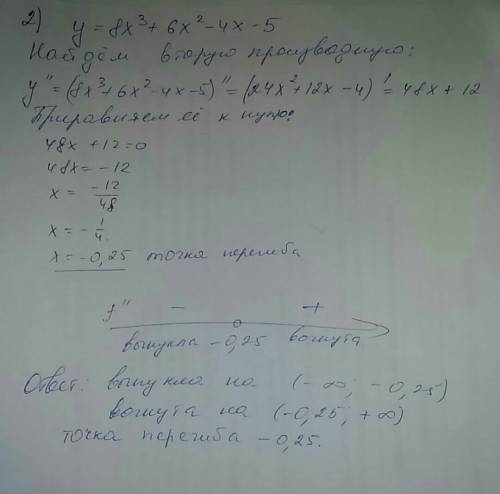 2) y = 8x³ + 6x² - 4x - 5
Найдём вторую производную:
y'' = (8x³+6x²-4x-5)'' = (24x²+12x-4)' = 48x + 12
Приравняем её к нулю:
48x + 12 = 0
48x = -12
x = -12/48
x = -1/4
x = -0,25 точка перегиба
f'' - +
выпукла -0,25 вогнута
Ответ: выпукла на (-∞; -0,25)
вогнута на (-0,25; +∞)
точка перегиба -0,25.